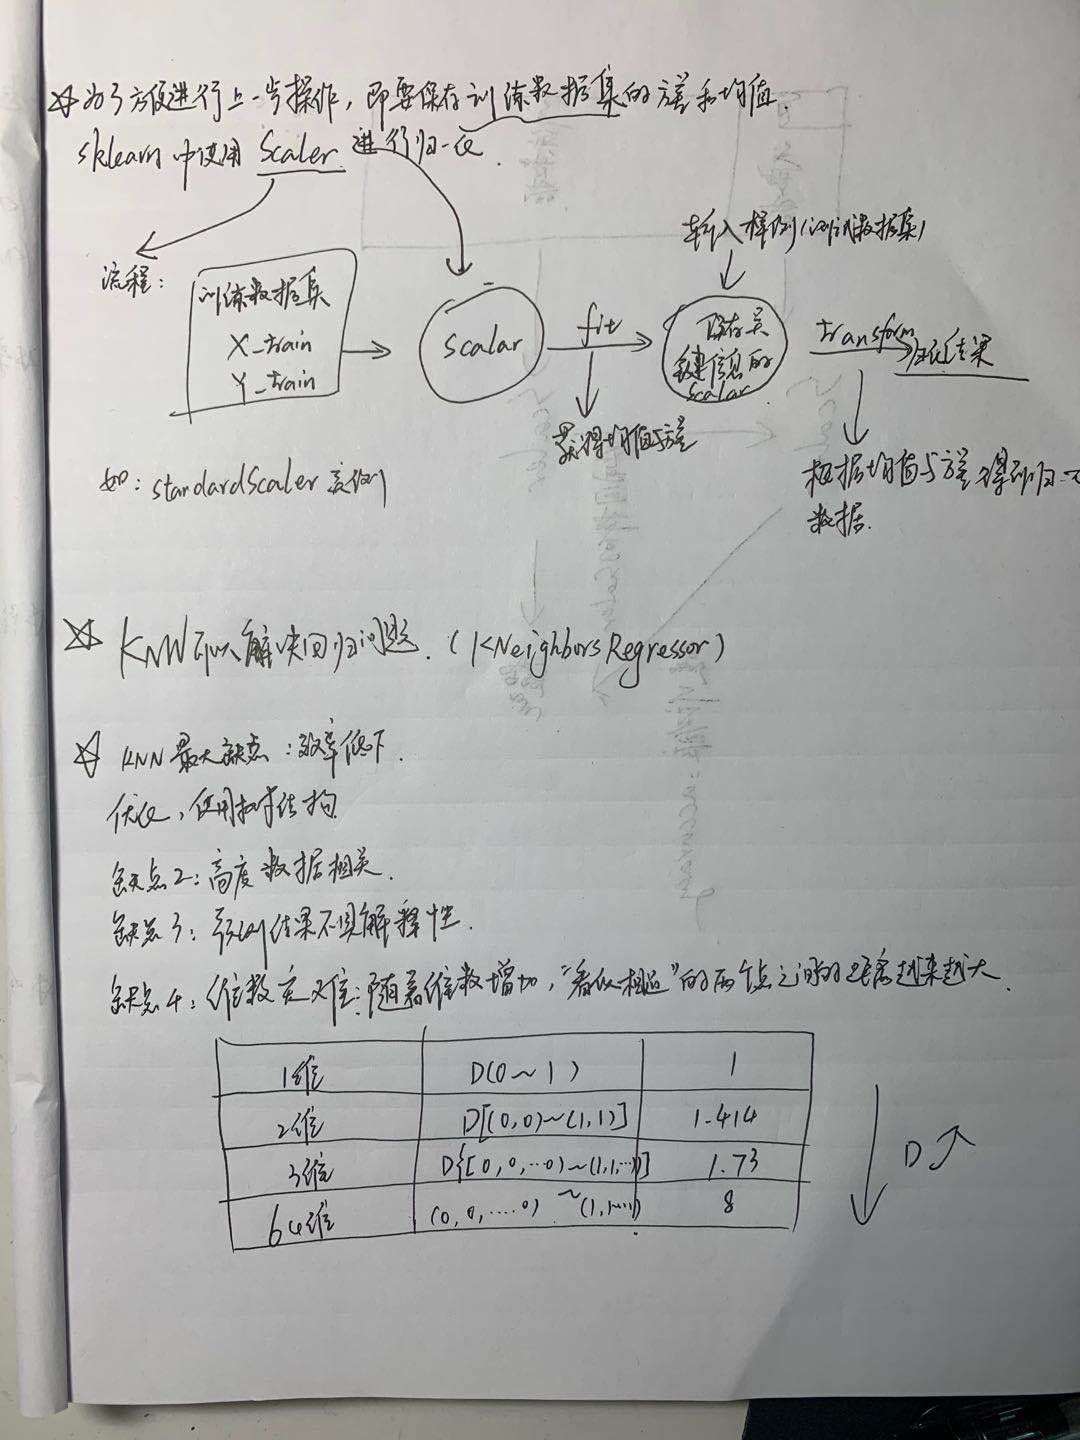 为了方便进行上一步操作，即要保存训练数据集的方差和均值.
sklearn 中使用 Scaler 进行归一化.
流程：
训练数据集
X_train
Y_train
scalar
fit
获得均值与方差
输入样例(测试数据集)
保存关
键信息的
scalar
transform
归一化结果
根据均值与方差得到归一化
数据.
如：standardScaler
KNN可以解决回归问题.（KNeighborsRegressor）
KNN 最大缺点：效率低下.
优化，使用树结构
缺点2：高度数据相关.
缺点3：预测结果不具解释性.
缺点4：维数灾难：随着维数增加，“看似相近”的两个点之间的距离越来越大.
1维 D(0~1) 1
2维 D[(0,0)~(1,1)] 1.414
3维 D{[0,0,…0)~(1,1,…)] 1.73
64维 (0,0,....0) ~(1,1....1) 8
D